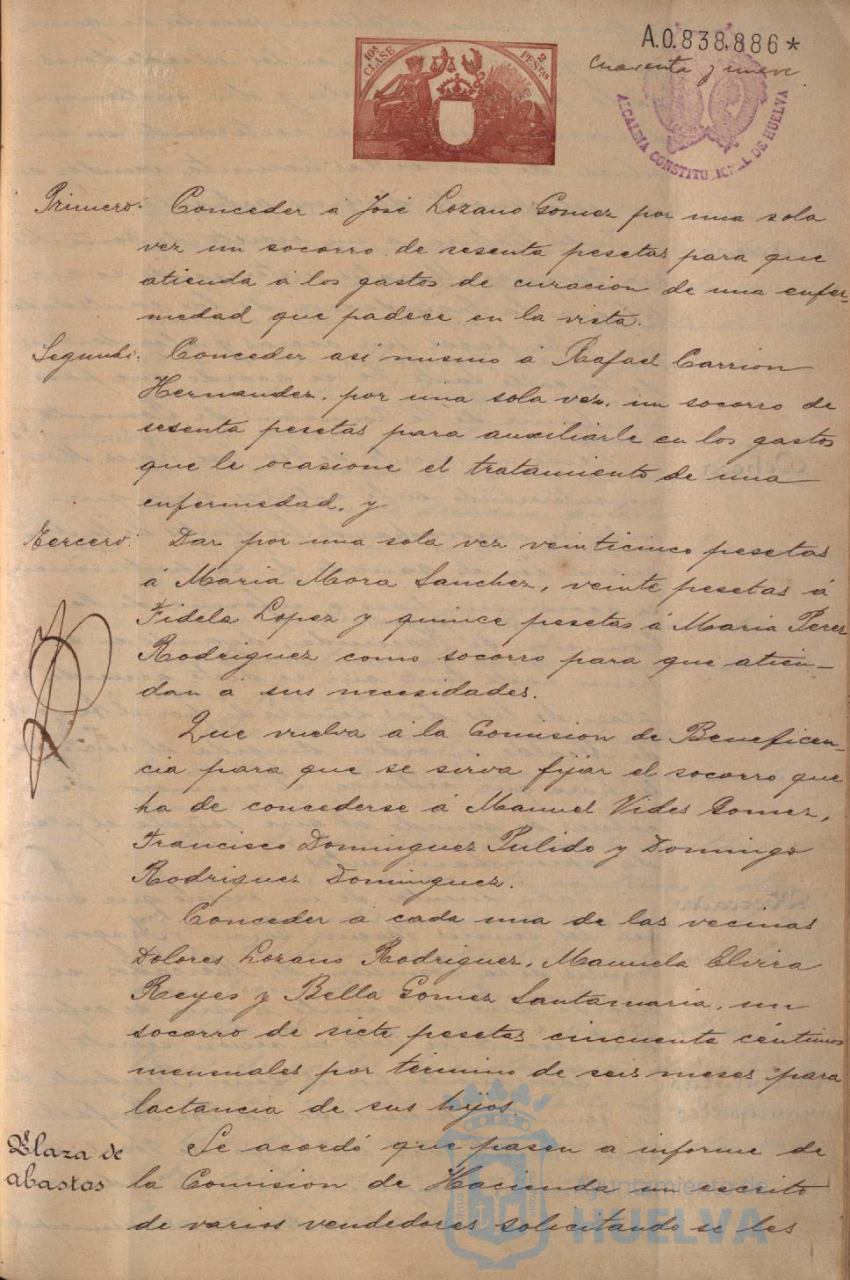 10ª CLASE 2 PESETAS
A.0.838.886*
cuarenta y nueve
ALCALDIA CONSTITUCIONAL DE HUELVA
Primero. Conceder á José Lozano Gomez por una sola
vez un socorro de sesenta pesetas para que
atienda á los gastos de curacion de una enfer-
medad que padece en la vista.
Segundo. Conceder asi mismo á Rafael Carrion
Hernandez, por una sola vez, un socorro de
sesenta pesetas para auxiliarle en los gastos
que le ocasione el tratamiento de una
enfermedad, y
Tercero. Dar por una sola vez veinticinco pesetas
á Maria Mora Sanchez, veinte pesetas á
Fidela Lopez y quince pesetas á Maria Perez
Rodriguez como socorro para que atien-
dan á sus necesidades.
Que vuelva á la Comision de Beneficen-
cia para que se sirva fijar el socorro que
ha de concederse á Manuel Vides Gomez,
Francisco Dominguez Pulido y Domingo
Rodriguez Dominguez.
Conceder á cada una de las vecinas
Dolores Lozano Rodriguez, Manuela Elvira
Reyes y Bella Gomez Santamaria, un
socorro de siete pesetas cincuenta céntimos
mensuales por término de seis meses para
lactancia de sus hijos.
Plaza de abastos
Se acordó que pasen á informe de
la Comision de Hacienda un escrito
de varios vendedores solicitando se les
Ayuntamiento de
HUELVA